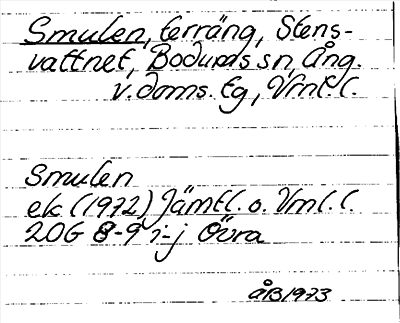 Smulen, terräng, Stens-
vattnet, Bodums sn, Ång.
v. doms. tg, Vrnl. l.
Smulen
ek (1972) Jämtl. o. Vrnl. l.
20G 8-9 i-j Övra
ÅB 1973